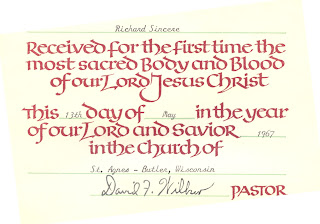 Richard Sincere
Received for the first time the
most sacred Body and Blood
of our Lord Jesus Christ
This 13th day of May in the year
of our Lord and Savior 1967
in the church of
St. Agnes - Butler, Wisconsin
David F. Wilbur PASTOR